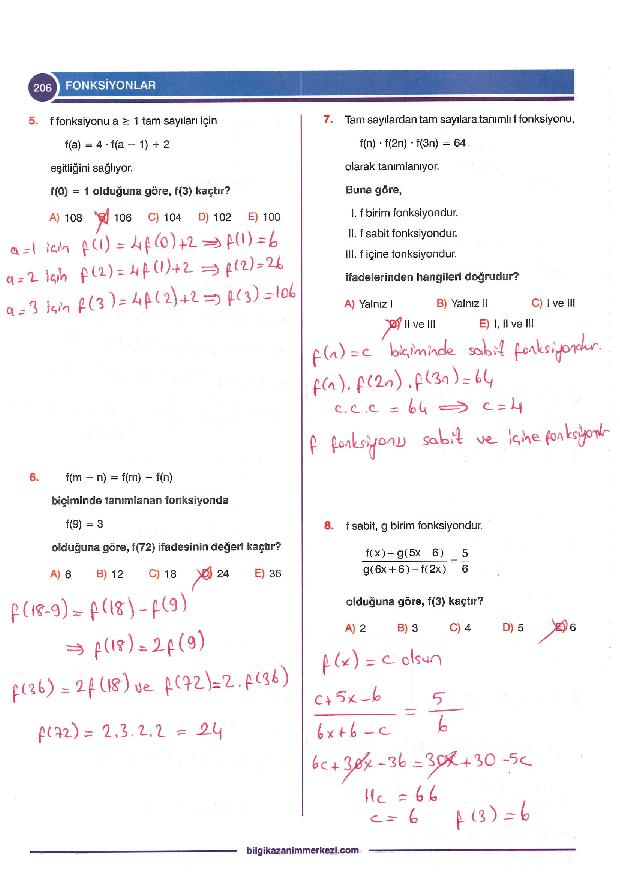 206 FONKSİYONLAR
5. f fonksiyonu a ≥ 1 tam sayıları için
f(a) = 4 · f(a – 1) + 2
eşitliğini sağlıyor.
f(0) = 1 olduğuna göre, f(3) kaçtır?
A) 108 B) 106 C) 104 D) 102 E) 100
a=1 için f(1) = 4f(0)+2 ⇒ f(1)=6
a=2 için f(2)=4f(1)+2 ⇒ f(2)=26
a=3 için f(3)=4f(2)+2 ⇒ f(3)=106
6. f(m – n) = f(m) – f(n)
biçiminde tanımlanan fonksiyonda
f(9) = 3
olduğuna göre, f(72) ifadesinin değeri kaçtır?
A) 6 B) 12 C) 18 D) 24 E) 36
f(18-9)=f(18)-f(9)
⇒ f(18)=2f(9)
f(36)=2f(18) ve f(72)=2.f(36)
f(72)=2.3.2.2 = 24
7. Tam sayılardan tam sayılara tanımlı f fonksiyonu,
f(n) · f(2n) · f(3n) = 64
olarak tanımlanıyor.
Buna göre,
I. f birim fonksiyondur.
II. f sabit fonksiyondur.
III. f içine fonksiyondur.
ifadelerinden hangileri doğrudur?
A) Yalnız I B) Yalnız II C) I ve III
D) II ve III E) I, II ve III
f(n)=c biçiminde sabit fonksiyondur.
f(n).f(2n).f(3n)=64
c.c.c = 64 ⇒ c=4
f fonksiyonu sabit ve içine fonksiyondur
8. f sabit, g birim fonksiyondur.
f(x)+g(5x 6) 5
g(6x+6)–f(2x) = 6
olduğuna göre, f(3) kaçtır?
A) 2 B) 3 C) 4 D) 5 E) 6
f(x)=c olsun
c+5x-6 5
6x+6-c = 6
6c+30x-36=30x+30-5c
11c = 66
c=6 f(3)=6
bilgikazanimmerkezi.com